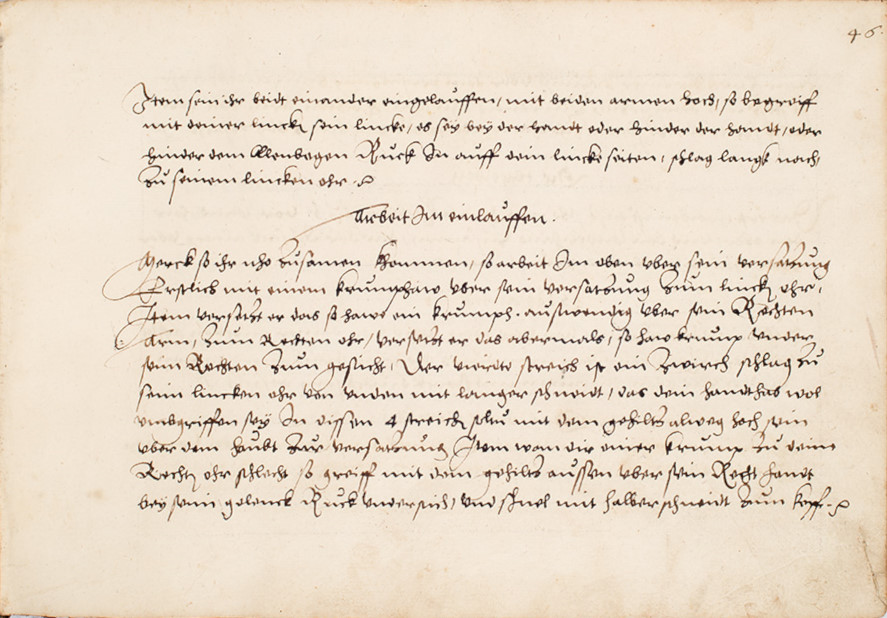 46.
Item sein ihr beidt einander eingelauffen, mit beiden armen hoch, so begreiff
mit deiner linck sein lincke, es sey bey der handt oder hinder der handt, oder
hinder dem Elenbogen Ruck In auff dein lincke seiten, schlag langk nach,
zu seinem lincken ohr.
Arbeit Im einlauffen.
Merck so ihr nho zusamen khommen, so arbeit Im oben vber sein versatzung
Erstlich mit einem krumphaw vber sein versatzung zum linck ohr,
Item versetzt er das so haw ein krumph auswendig vber sein Rechten
Arm, zum Rechten ohr, versetzt er das abermals, so haw krump vnder
sein Rechten zum gesicht, Der vierdte streich ist ein zwirch schlag zu
seim lincken ohr von vnden mit langer schneidt, das dein handthab wol
vmbgriffen sey In dissen 4 streich soltu mit dem gehiltz alweg hoch sein
vber dem haubt zur versatzung Item wan dir einer krump zu deim
Recht ohr schlecht so greiff mit dem gehiltz aussen vber sein Recht handt
bey seim gelenck Ruck vndersich, vnd schnel mit halber schneidt zum kopff.